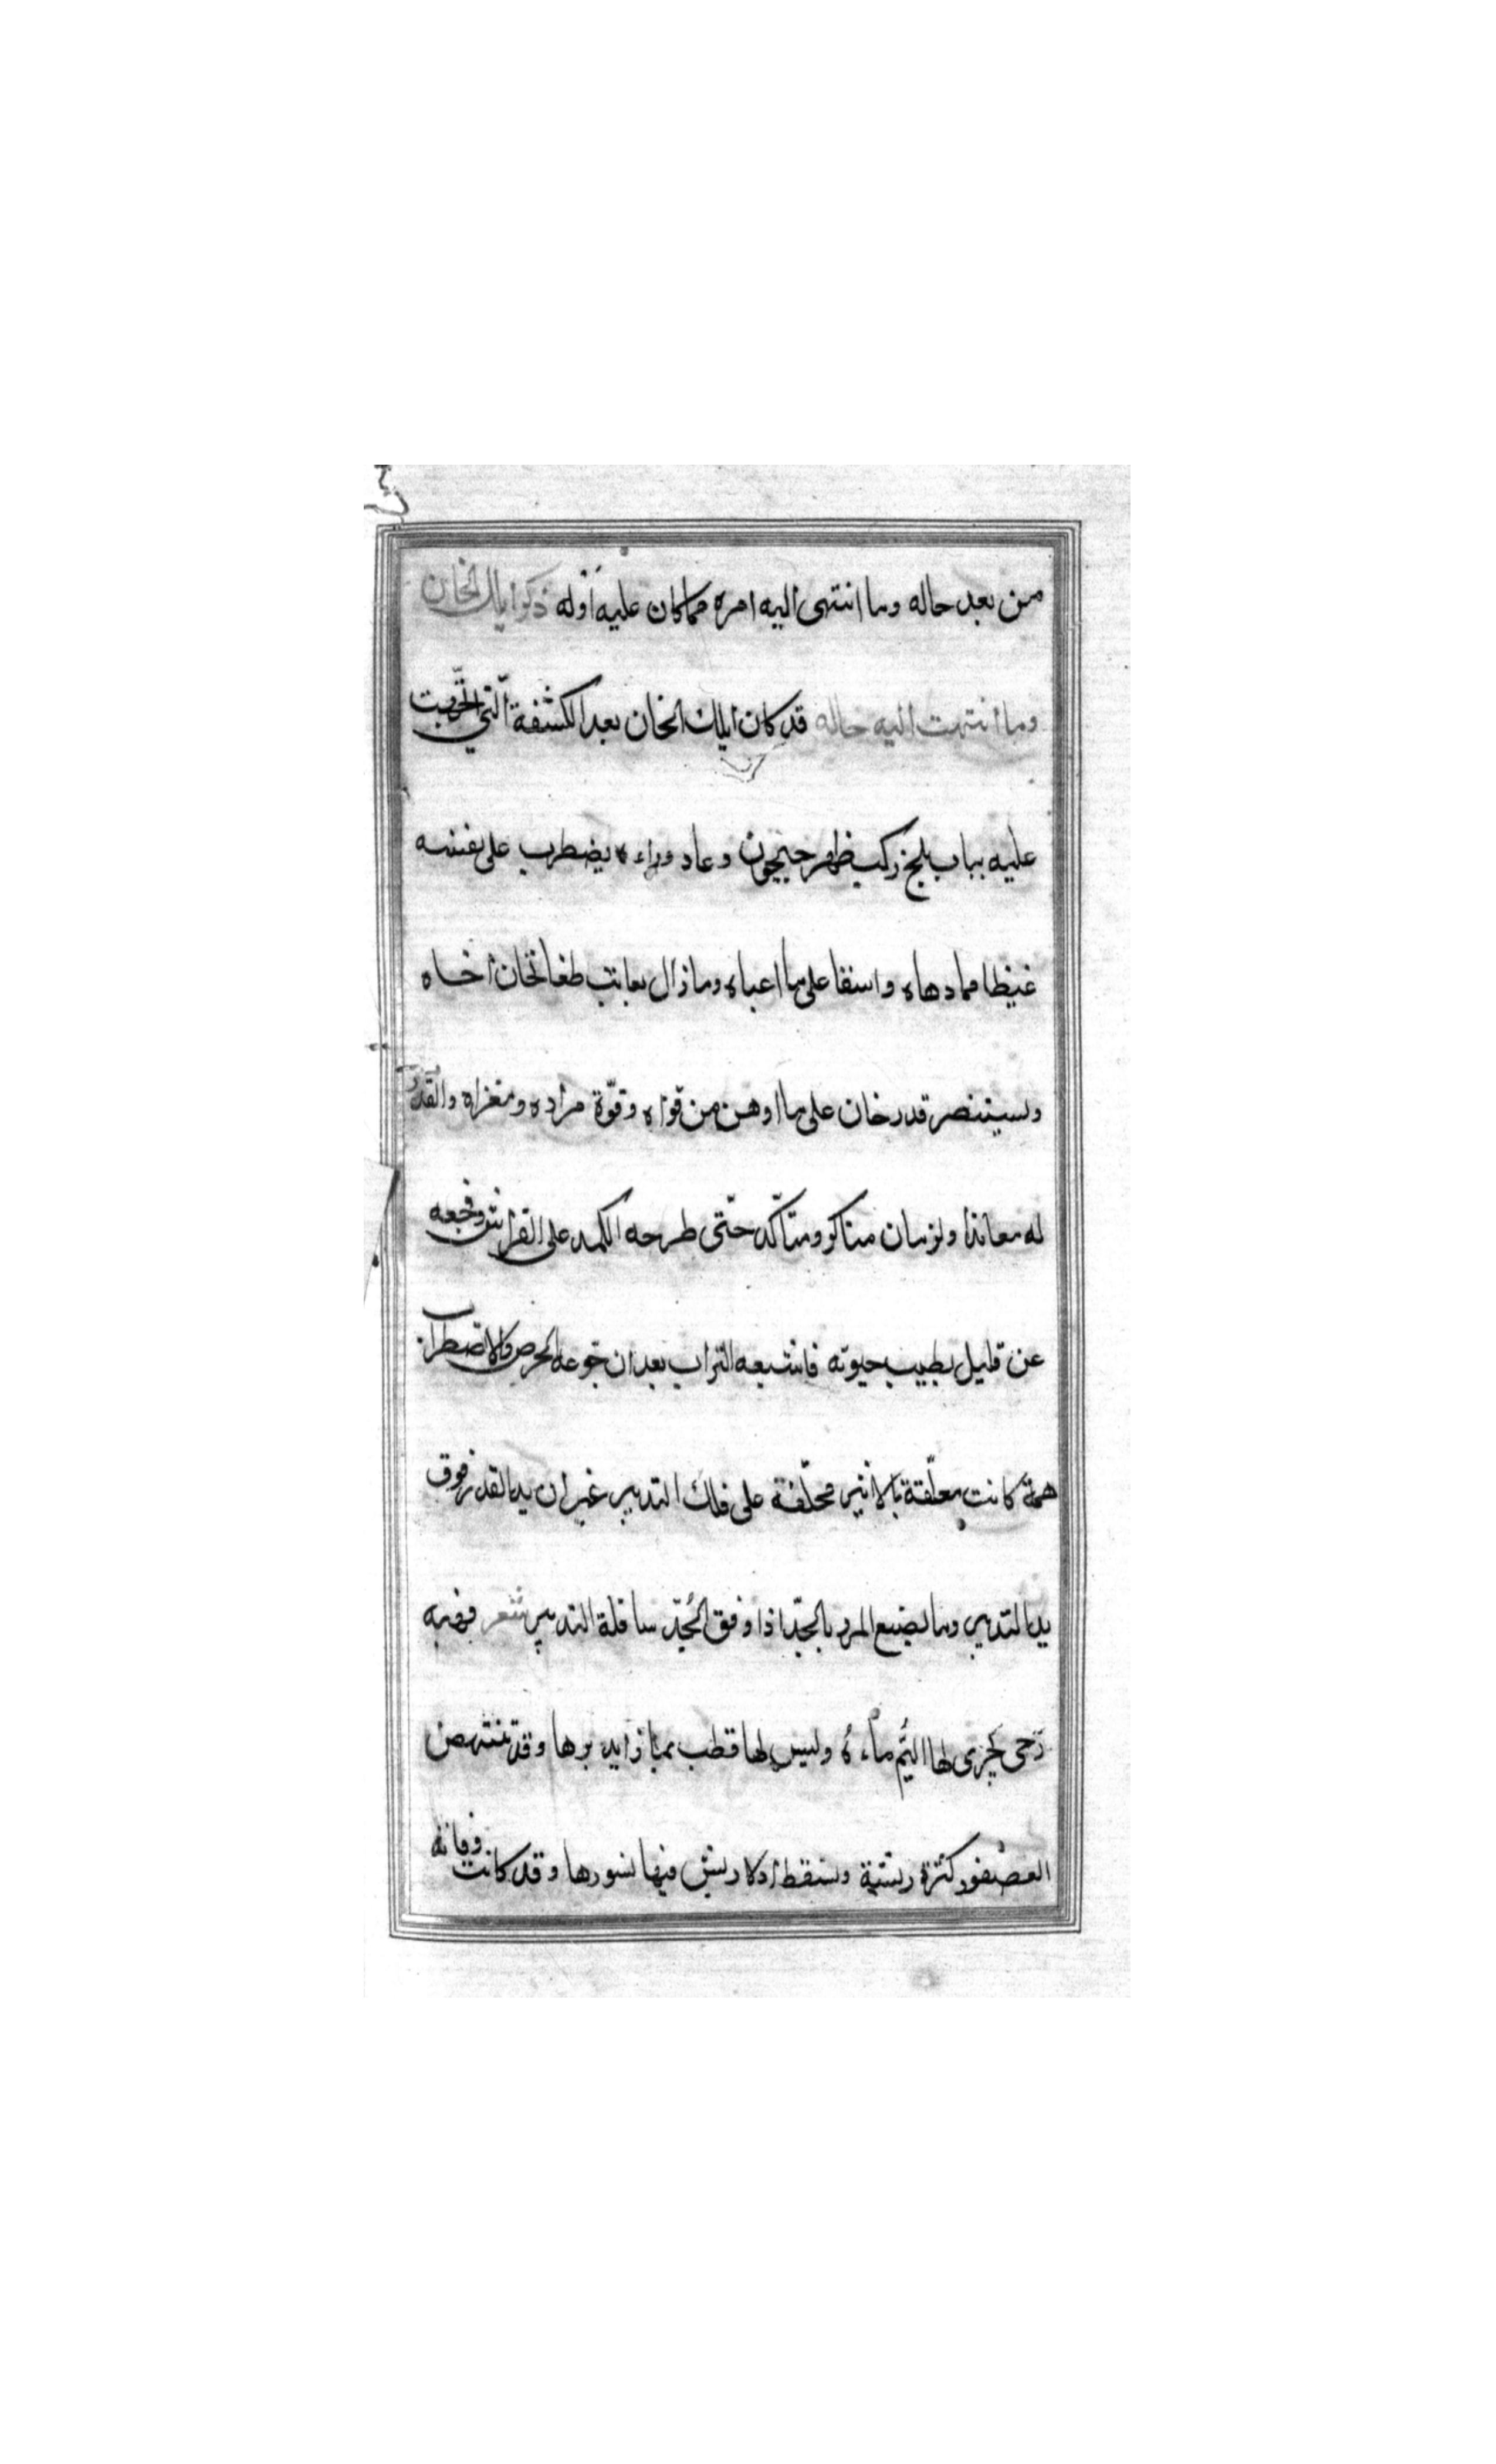 من بعد حاله وما انتهى اليه امره مما كان عليه اوله ذكر ايلك الخان
وما انتهت اليه حاله قد كان ايلك الخان بعد الكشفة التي اتجهت
عليه بباب بلخ ركب ظهر جيحون وعاد وراءه يضطرب على نفسه
غيظا مما دهاه واسفا على ما اعياه وما زال يعاتب طغانخان اخاه
ويستنصر قدر خان على ما اوهن من قواه وقوّة مراده ومغزاه والقدر
له معاند ولزمان مناكر ومتأكد حتّى طرحه الكمد على الفراش وفجعه
عن قليل بطيب حيوته فاشبعه التراب بعد ان جوعه الحرص والاضطراب
همة كانت معلّقة بالاثير محلّقة على فلك التدبير غير ان يد القدر فوق
يد التدبير وما يصنع المرء بالجدّ اذا وفق الجدّ سافلة التدبير شعر فهبه
رحى تجرى لها اليم ماءه وليس لها قطب بماذا يديرها وقد ينتهض
العصفور كثرة ريشه ويسقط اذ لا ريش فيها نسورها وقد كانت وفاته